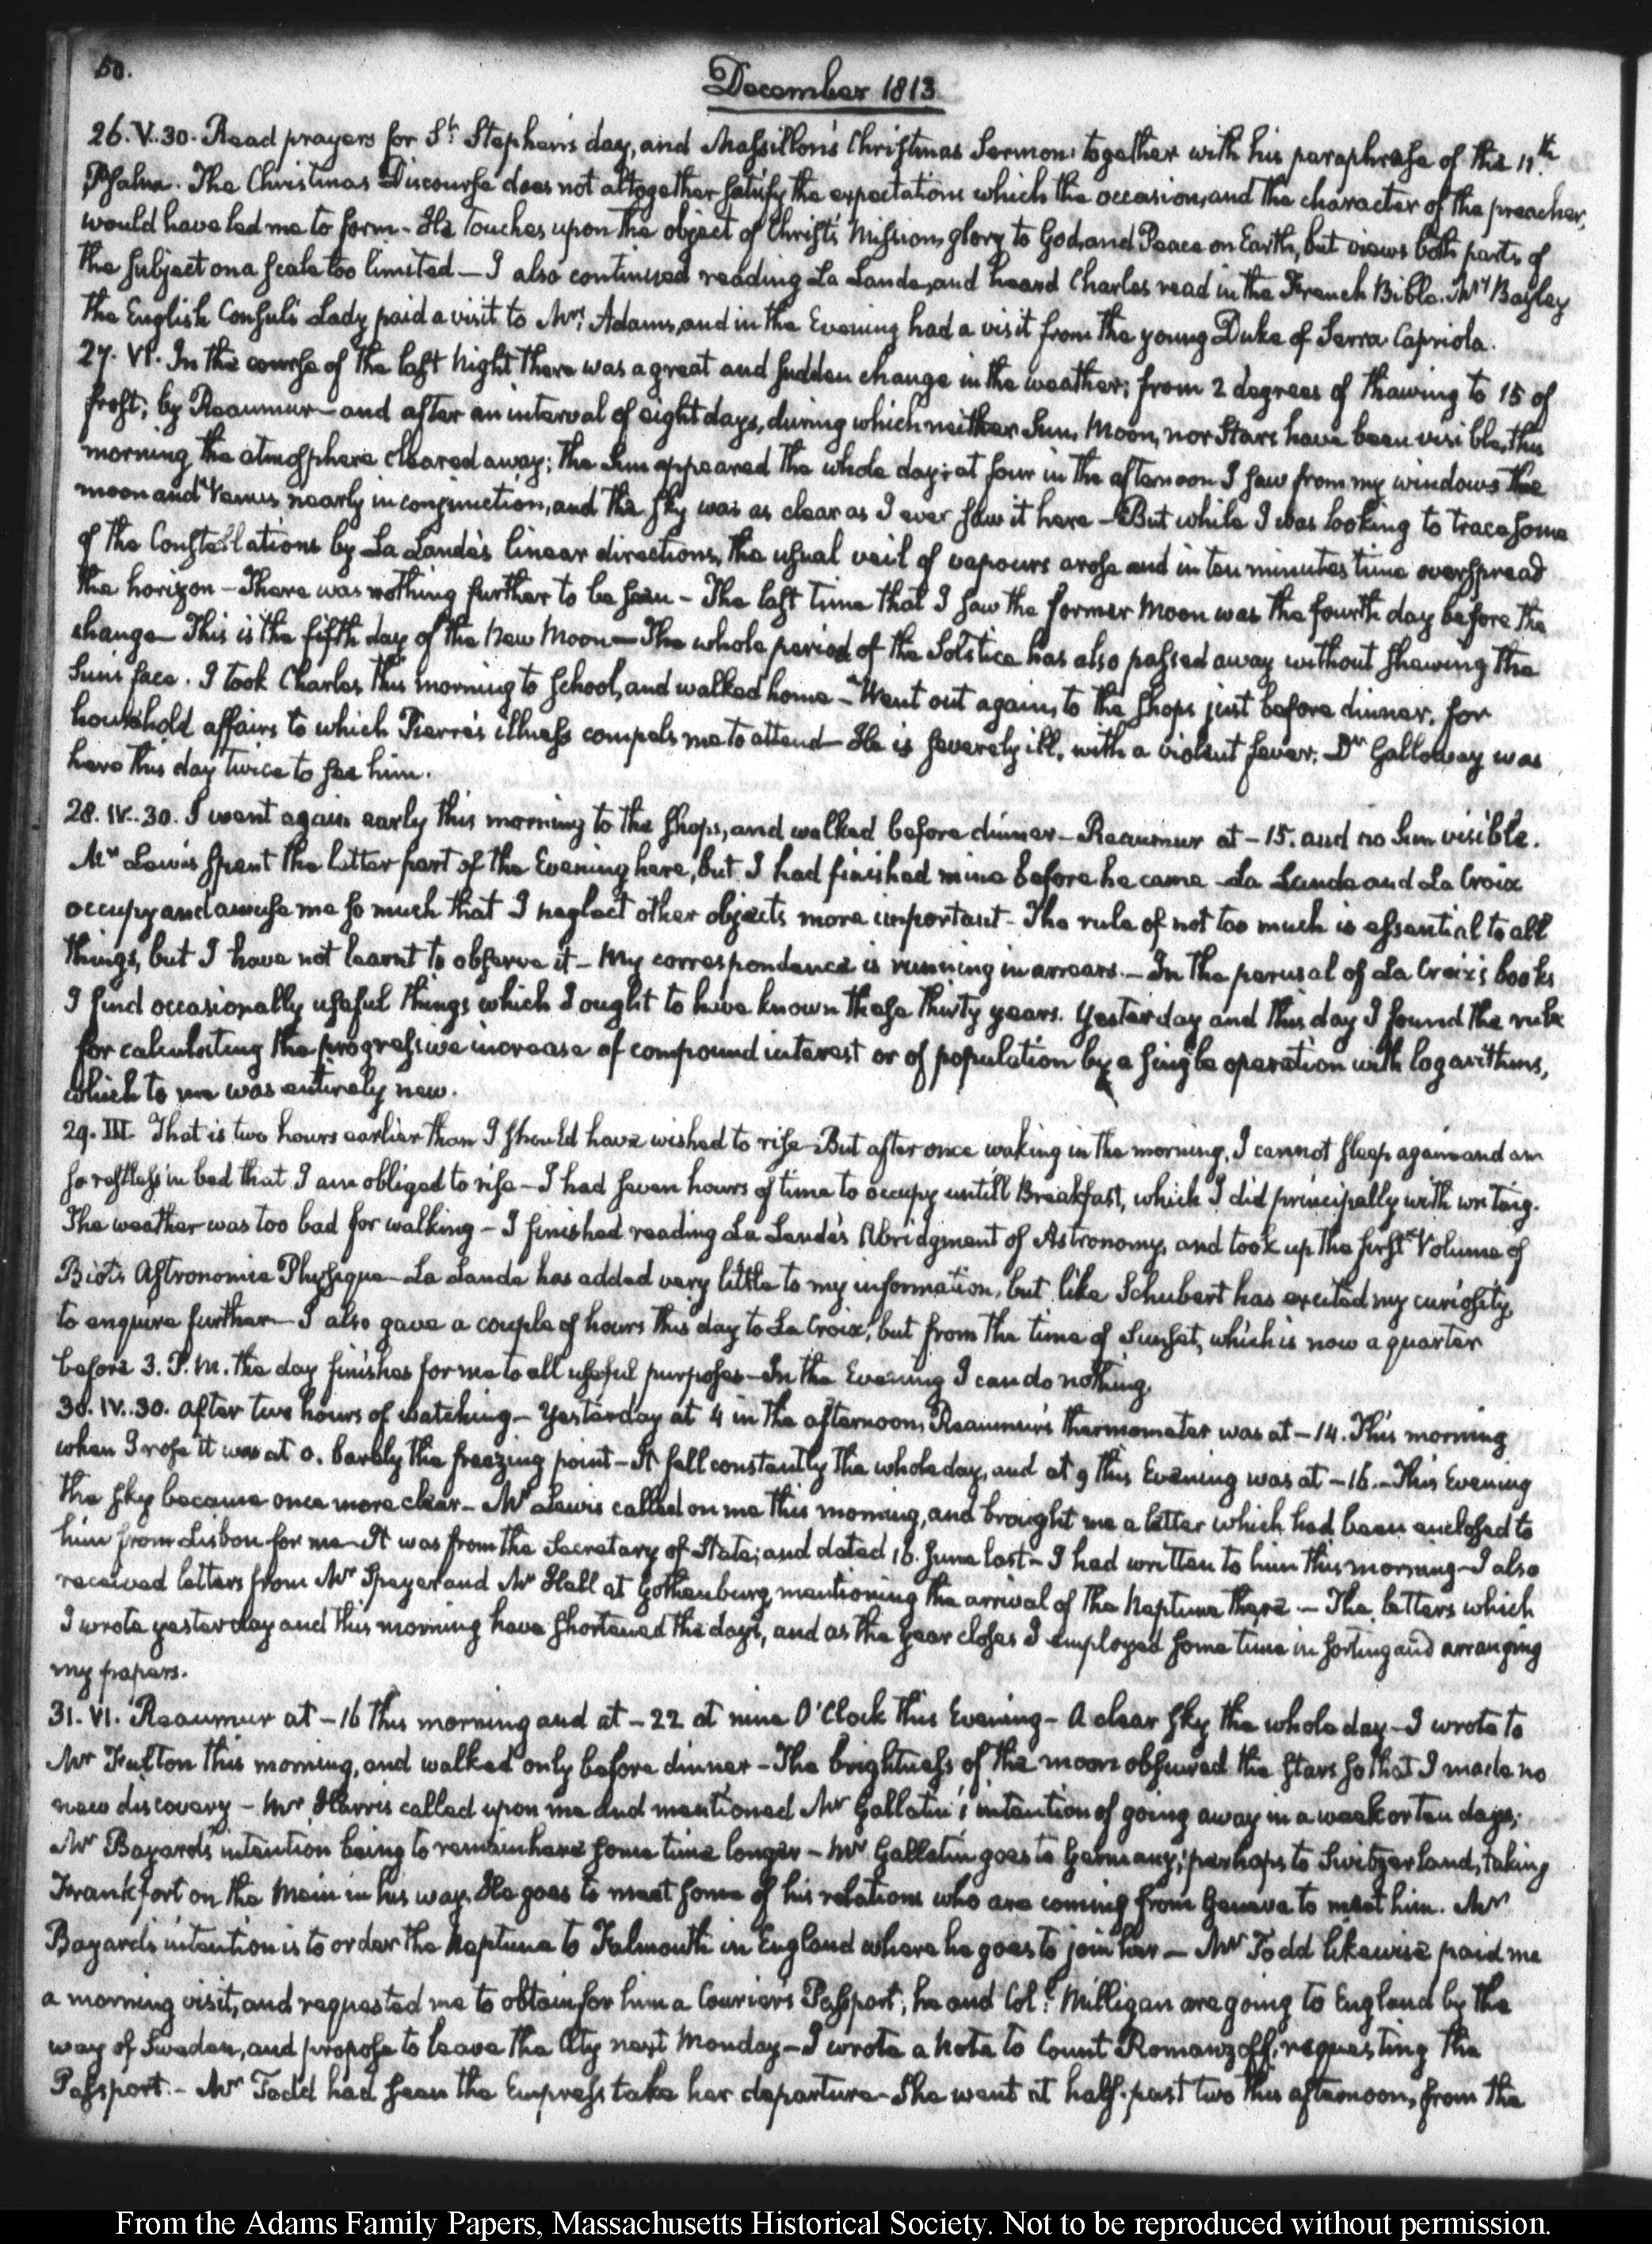 50.
December 1813
26. V..30. Read prayers for St. Stephen's day, and Massillon's Christmas Sermon; together with his paraphrase of the 11th.
Psalm. The Christmas Discourse does not altogether satisfy the expectations which the occasion, and the character of the preacher,
would have led me to form - He touches upon the object of Christ's Mission, glory to God, and Peace on Earth, but views both parts of
the subject on a scale too limited — I also continued reading La Lande, and heard Charles read in the French Bible. Mrs Bayley
the English Consul's Lady paid a visit to Mrs. Adams, and in the Evening had a visit from the young Duke of Serra Capriola.
27. VI. In the course of the last Night there was a great and sudden change in the weather; from 2 degrees of thawing to 15 of
frost, by Reaumur — and after an interval of eight days, during which neither Sun, Moon, nor Stars have been visible, this
morning the atmosphere cleared away; the Sun appeared the whole day; at four in the afternoon I saw from my windows the
moon and Venus nearly in conjunction, and the sky was as clear as I ever saw it here — But while I was looking to trace some
of the Constellations by La Lande's linear directions, the usual veil of vapours arose and in ten minutes time overspread
the horizon — There was nothing further to be seen — The last time that I saw the former Moon was the fourth day before the
change — This is the fifth day of the New Moon — The whole period of the Solstice has also passed away without shewing the
Sun's face. I took Charles this morning to School, and walked home — Went out again, to the shops just before dinner, for
household affairs to which Pierre's illness compels me to attend — He is severely ill, with a violent fever. Dr Galloway was
here this day twice to see him.
28. IV..30. I went again early this morning to the shops, and walked before dinner — Reaumur at -15. and no Sun visible.
Mr Lewis spent the latter part of the Evening here, but I had finished mine before he came — La Lande and La Croix
occupy and amuse me so much that I neglect other objects more important — The rule of not too much is essential to all
things, but I have not learnt to observe it — My correspondence is running in arrears. — In the perusal of La Croix's books
I find occasionally useful things which I ought to have known these thirty years. Yesterday and this day I found the rule
for calculating the progressive increase of compound interest or of population by a single operation with logarithms,
which to me was entirely new.
29. III. That is two hours earlier than I should have wished to rise — But after once waking in the morning, I cannot sleep again and am
so restless in bed that I am obliged to rise — I had seven hours of time to occupy untill Breakfast, which I did principally with writing.
The weather was too bad for walking — I finished reading La Lande's Abridgment of Astronomy, and took up the first Volume of
Biot's Astronomie Physique — La Lande has added very little to my information, but like Schubert has excited my curiosity,
to enquire further — I also gave a couple of hours this day to La Croix, but from the time of Sunset, which is now a quarter
before 3. P.M. the day finishes for me to all useful purposes — In the Evening I can do nothing.
30. IV..30. After two hours of watching. — Yesterday at 4 in the afternoon, Reaumur's thermometer was at -14. This morning
when I rose it was at 0. barely the freezing point — It fell constantly the whole day, and at 9 this Evening was at -16. — This Evening
the sky became once more clear — Mr Lewis called on me this morning, and brought me a letter which had been enclosed to
him from Lisbon for me — It was from the Secretary of State; and dated 18. June last — I had written to him this morning — I also
received letters from Mr Speyer and Mr Hall at Gothenburg mentioning the arrival of the Neptune there. — The letters which
I wrote yesterday and this morning have shortened the days, and as the year closes I employed some time in sorting and arranging
my papers.
31. VI. Reaumur at -16 this morning and at -22 at nine O'Clock this Evening — A clear sky the whole day — I wrote to
Mr Fulton this morning, and walked only before dinner — The brightness of the moon obscured the stars so that I made no
new discovery — Mr Harris called upon me and mentioned Mr Gallatin's intention of going away in a week or ten days;
Mr Bayard's intention being to remain here some time longer — Mr Gallatin goes to Germany; perhaps to Switzerland, taking
Frankfort on the Main in his way. He goes to meet some of his relations who are coming from Geneva to meet him. Mr
Bayard's intention is to order the Neptune to Falmouth in England where he goes to join her — Mr Todd likewise paid me
a morning visit, and requested me to obtain for him a Courier's Passport; he and Coll. Milligan are going to England by the
way of Sweden, and propose to leave the City next Monday — I wrote a Note to Count Romanzoff, requesting the
Passport. — Mr Todd had seen the Empress take her departure — She went at half-past two this afternoon, from the
From the Adams Family Papers, Massachusetts Historical Society. Not to be reproduced without permission.